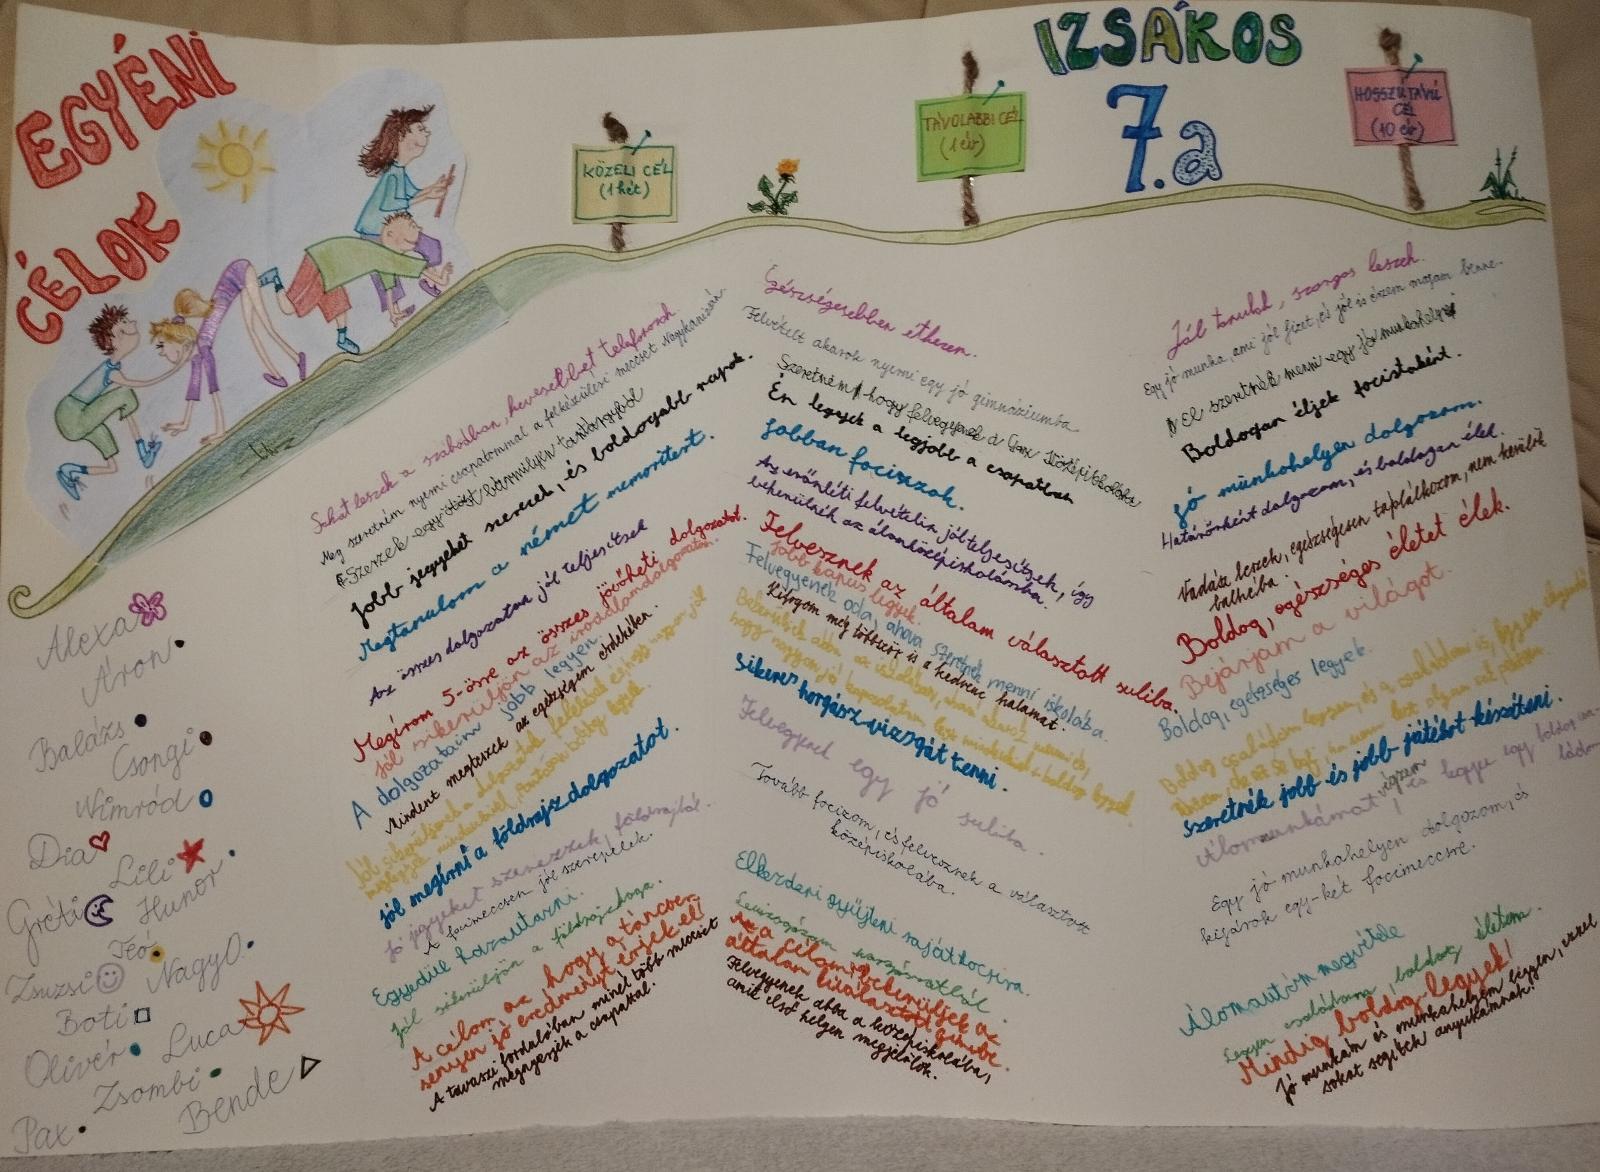 EGYÉNI
CÉLOK
IZSÁKOS
7.a
KÖZELI CÉL
(1 hét)
TÁVOLABBI CÉL
(1 év)
HOSSZÚTÁVÚ
CÉL
(10 év)
Alexa
Áron
Balázs
Csongi
Nimród
Dia
Lili
Gréti
Hunor
Teó
Zsuzsi
NagyO.
Boti
Olivér
Luca
Zsombi
Bende
Pax
Sokat leszek a szabadban, kevesebbet telefonozok.
Meg szeretném nyerni csapatommal a felkészülési meccset Nagykanizsán.
Szerzek egy ötöst bármilyen tantárgyból
Jobb jegyeket szerzek, és boldogabb napok.
Megtanulom a német memoritert.
Az összes dolgozatom jól teljesítsek
Megírom 5-ösre az összes jövőheti dolgozatot.
Jól sikerüljön az irodalomdolgozatom.
A dolgozataim jobb legyen.
Mindent megteszek az egészségem érdekében.
Jól megírni a földrajz dolgozatot.
Jó jegyeket szerezzek földrajzból.
A focimeccsen jól szerepelek.
Egyedül hazautazni.
Jól sikerüljön a földrajzdoga.
A célom az, hogy a táncver-
senyen jó eredményt érjek el!
A tavaszi fordulóban minél több meccset
megnyerjek a csapattal.
Egészségesebben étkezem.
Felvételt akarok nyerni egy jó gimnáziumba
Szeretném hogy felvegyenek a
Én legyek a legjobb a csapatban
Jobban focizzak.
Az erőnléti felvételin jól teljesítsek, így
bekerülnék az álomközépiskolámba.
Felvesznek az általam választott suliba.
Jobb kapus legyek.
Felvegyenek oda, ahova szeretnék menni iskolába.
Kifogom még többször is a kedvenc halamat.
Sikeres horgász vizsgát tenni.
Felvegyenek egy jó suliba.
Tovább focizom, és felvesznek a választott
középiskolába.
Elkezdeni gyűjteni saját kocsira.
Az a célom, bekerüljek az
általam kiválasztott gimibe.
Felvegyenek abba a középiskolába,
amit első helyen megjelölök.
Jól tanulok, szorgos leszek.
Egy jó munka, ami jól fizet, és jól is érzem magam benne.
El szeretnék menni egy jó munkahelyre
Boldogan éljek focistaként.
Jó munkahelyen dolgozom.
Határőrként dolgozom, és boldogan élek.
Vadász leszek, egészségesen táplálkozom, nem kerülök
balhéba.
Boldog, egészséges életet élek.
Bejárjam a világot.
Boldog, egészséges legyek.
Szeretnék jobb és jobb játékot készíteni.
Álommunkámat végzem, és legyen egy boldog csa-
ládom
Egy jó munkahelyen dolgozom, és
kijárok egy-két focimeccsre.
Álomautóm megvétele
Legyen családom, boldog életem.
Mindig boldog legyek!
Jó munkám és munkahelyem legyen, ezzel
sokat segítek anyukámnak.